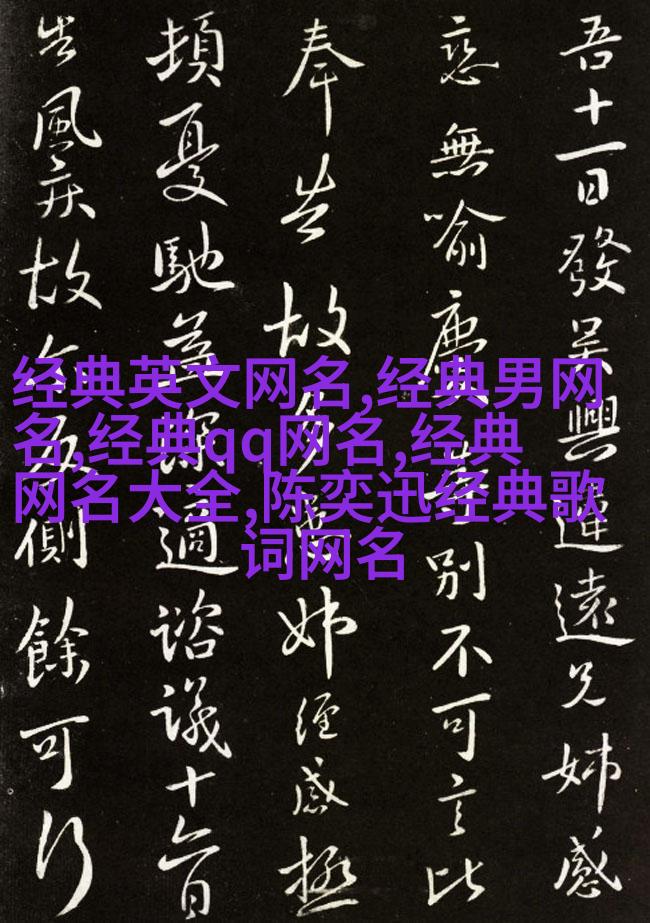 经典英文网名,经典男网
名,经典qq网名,经典
网名大全,陈奕迅经典歌
词网名
吾十一日發吳興違遠兄姊感
戀無喻別不可言比
奉告故姊經感極
頓憂馳益深適諮議十六日
告風疾故側餘可行